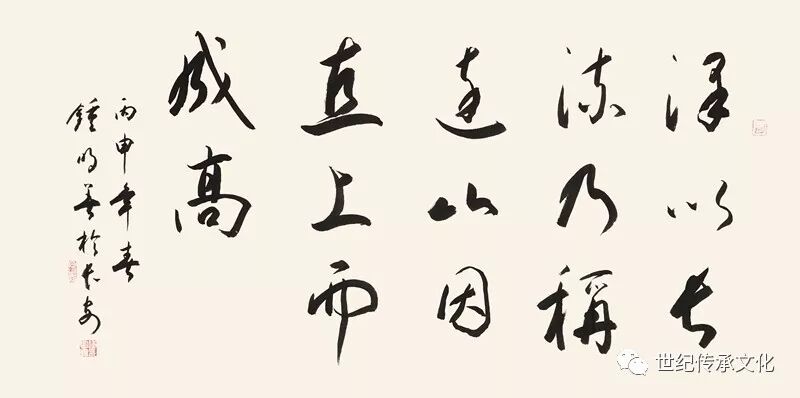 澤以長
流乃稱
遠山因
直上而
成高
丙申年春
鍾明善於長安
世纪传承文化